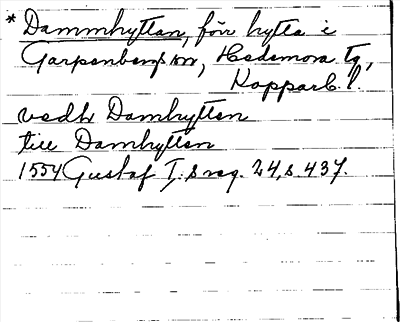 * Dammhyttan, förr hytta i
Garpenbergs sn, Hedemora tg,
Kopparb. l.
vedh Damhytten
till Damhytten
1554 Gustaf I:s reg. 24, s. 437.